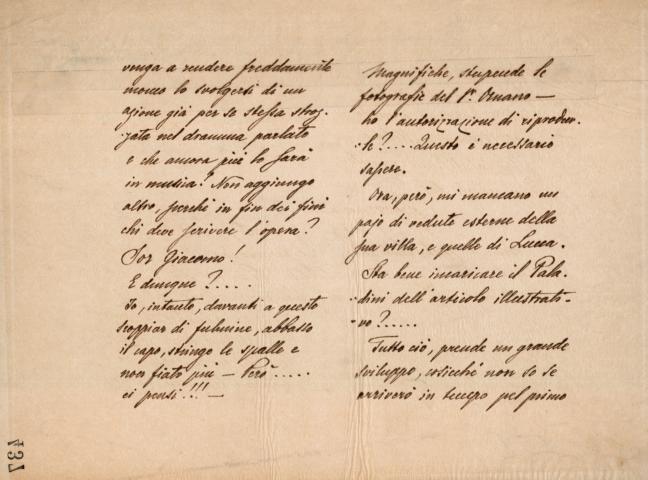 venga a rendere freddamente
monco lo svolgersi di un
azione già per se stessa stroz-
zata nel dramma parlato
e che ancora più lo sarà
in musica? Non aggiungo
altro, perchè in fin dei fini
chi deve scrivere l'opera?
Sor Giacomo!
E dunque?.....
Io, intanto, davanti a questo
scoppiar di fulmine, abbasso
il capo, stringo le spalle e
non fiato più — Però.....
ci pensi!!! —
Magnifiche, stupende le
fotografie del Pr. Ornano —
ho l'autorizzazione di riprodur-
le?.... Questo è necessario
sapere.
Ora, però, mi mancano un
pajo di vedute esterne della
sua villa, e quelle di Lucca.
Sta bene incaricare il Pala-
dini dell'articolo illustrati-
vo?.....
Tutto ciò, prende un grande
sviluppo, cosicchè non so se
arriverò in tempo pel primo
437